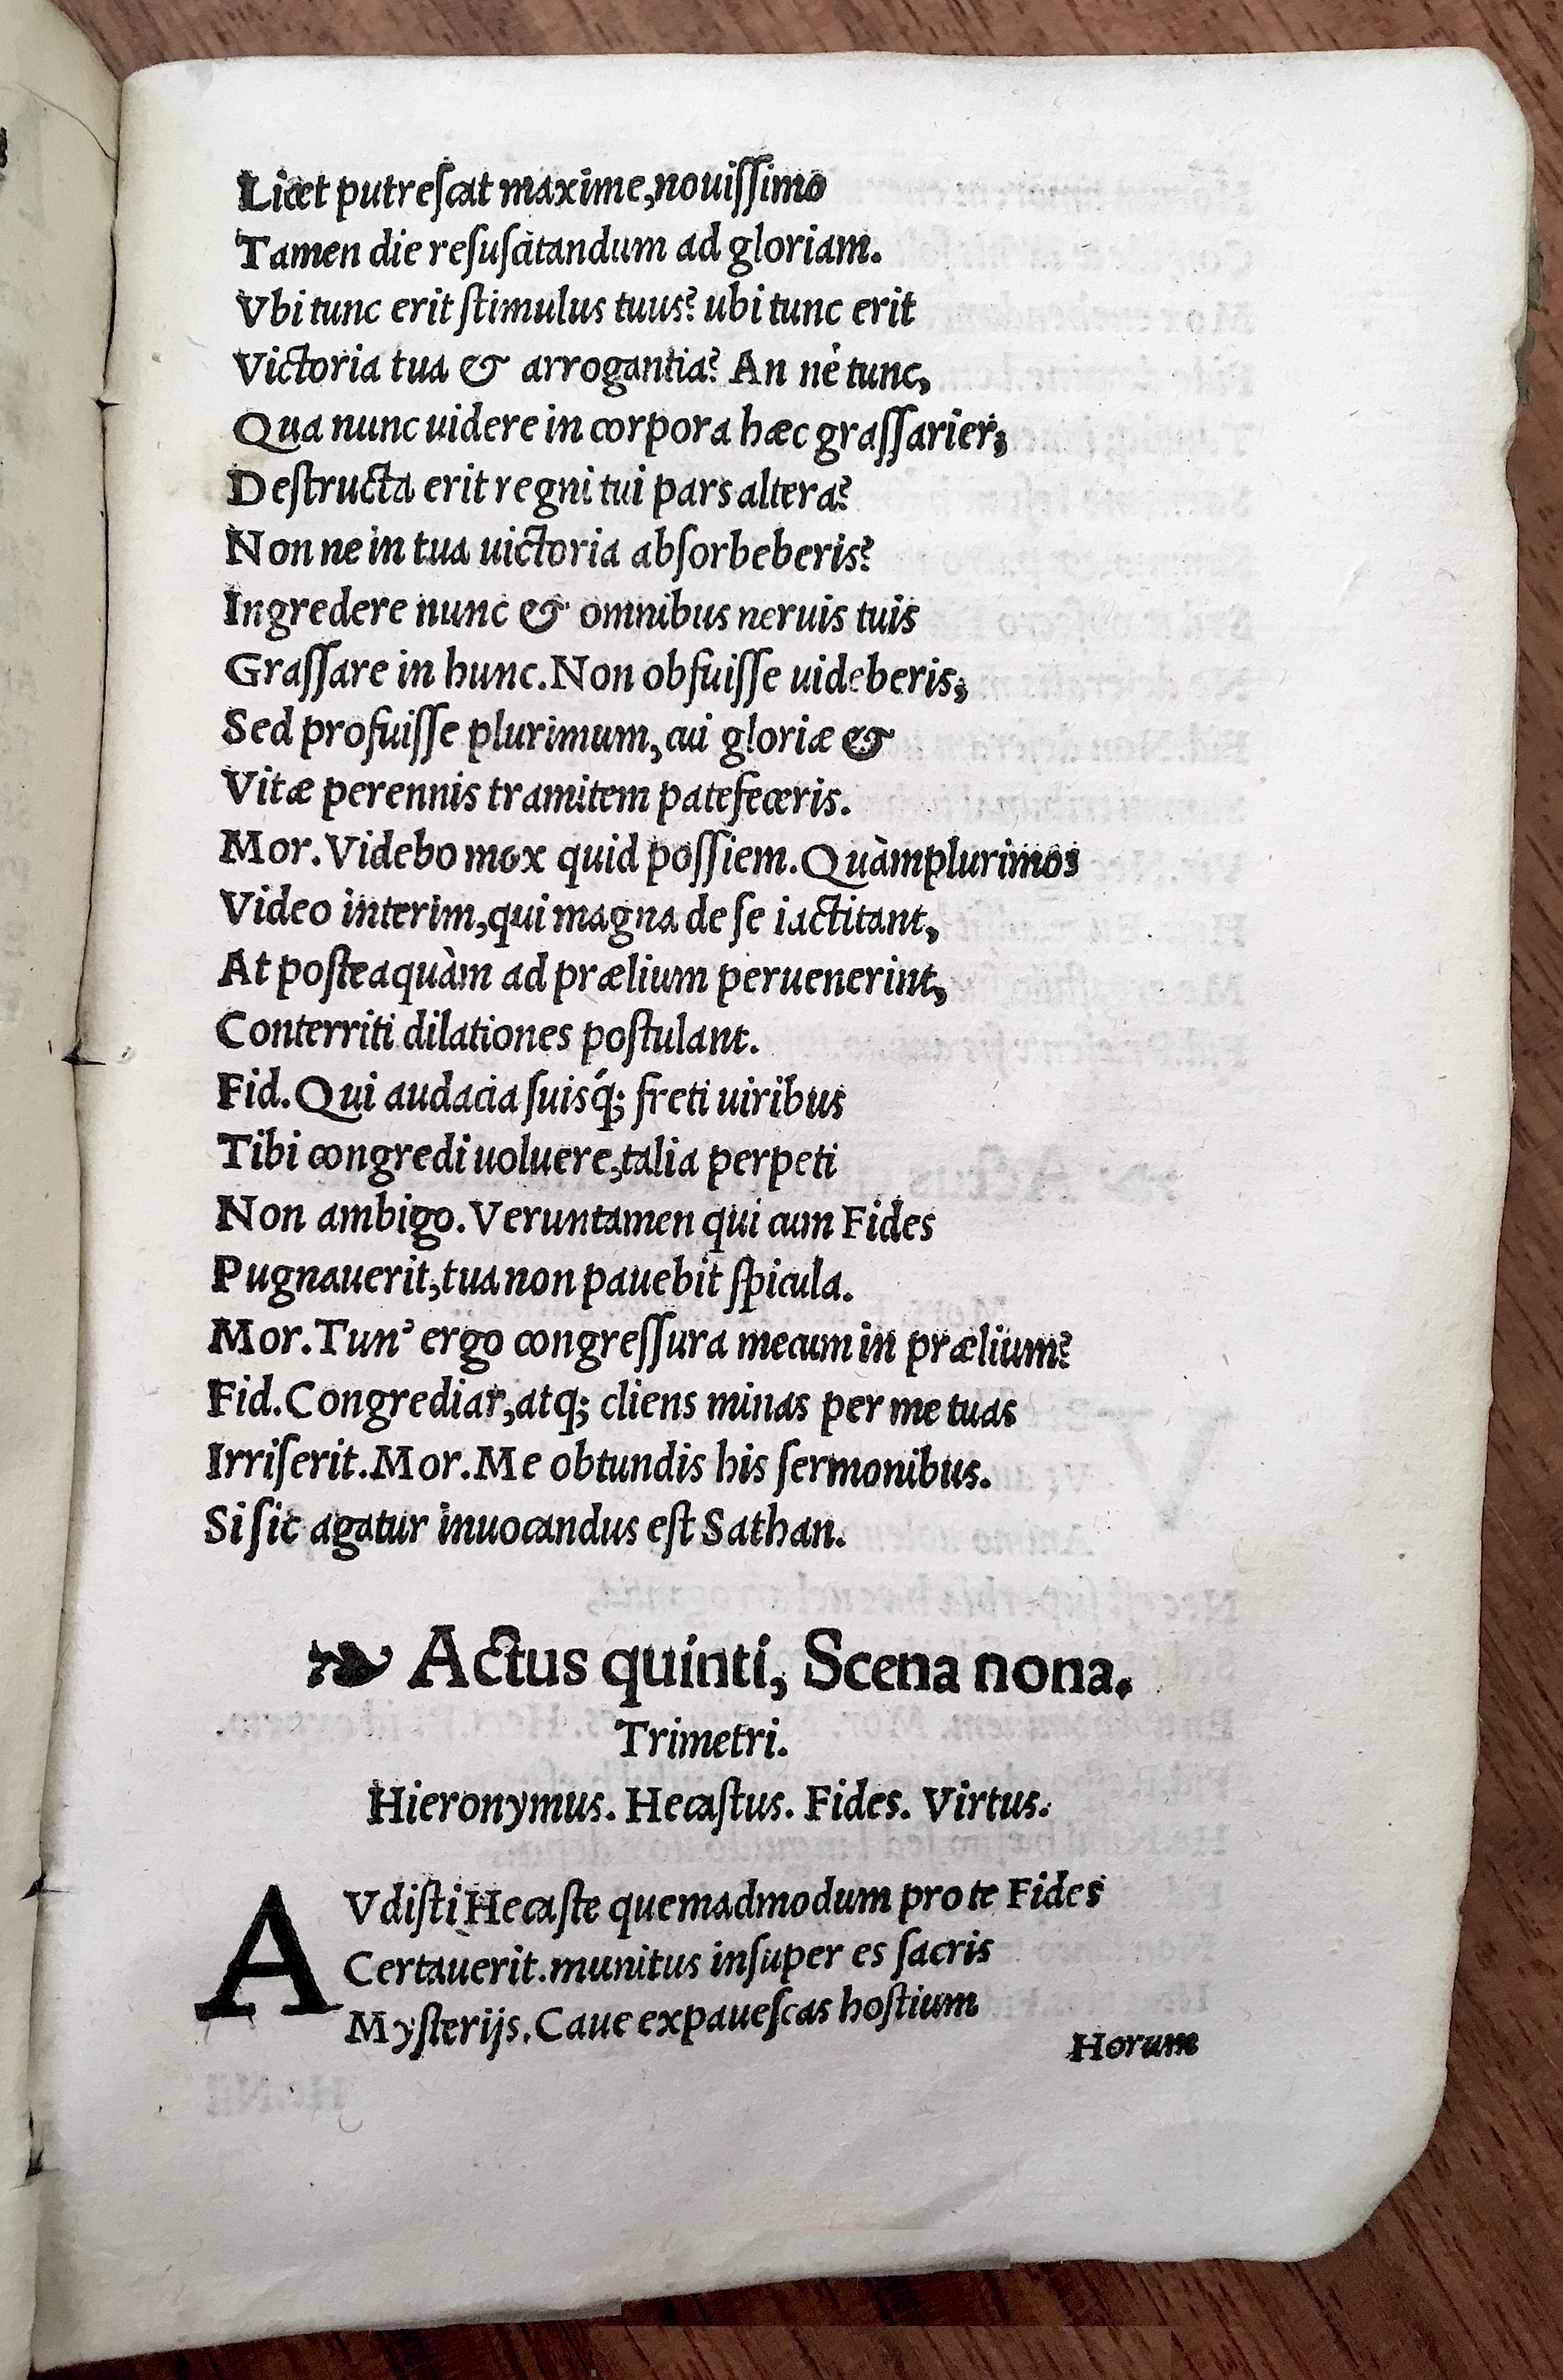 Licet putreſcat maxime,nouiſſimo
Tamen die reſuſcitandum ad gloriam.
Vbi tunc erit ſtimulus tuus? ubi tunc erit
Victoria tua & arrogantia? An nè tunc,
Qua nunc uidere in corpora hæc graſſarier,
Deſtructa erit regni tui pars altera?
Non ne in tua uictoria abſorbeberis?
Ingredere nunc & omnibus neruis tuis
Graſſare in hunc. Non obfuiſſe uideberis,
Sed profuiſſe plurimum, cui gloriæ &
Vitæ perennis tramitem patefeceris.
Mor. Videbo mox quid poſſiem. Quàmplurimos
Video interim,qui magna de ſe iactitant,
At poſteaquàm ad prælium peruenerint,
Conterriti dilationes poſtulant.
Fid. Qui audacia ſuisq́; freti uiribus
Tibi congredi uoluere,talia perpeti
Non ambigo. Veruntamen qui cum Fides
Pugnauerit,tua non pauebit ſpicula.
Mor. Tun' ergo congreſſura mecum in prælium?
Fid. Congrediar,atq; cliens minas per me tuas
Irriſerit. Mor. Me obtundis his ſermonibus.
Si ſic agatur inuocandus eſt Sathan.
❧ Actus quinti, Scena nona.
Trimetri.
Hieronymus. Hecaſtus. Fides. Virtus.
AVdiſti Hecaſte quemadmodum pro te Fides
Certauerit. munitus inſuper es ſacris
Myſterijs. Caue expaueſcas hoſtium
Horum